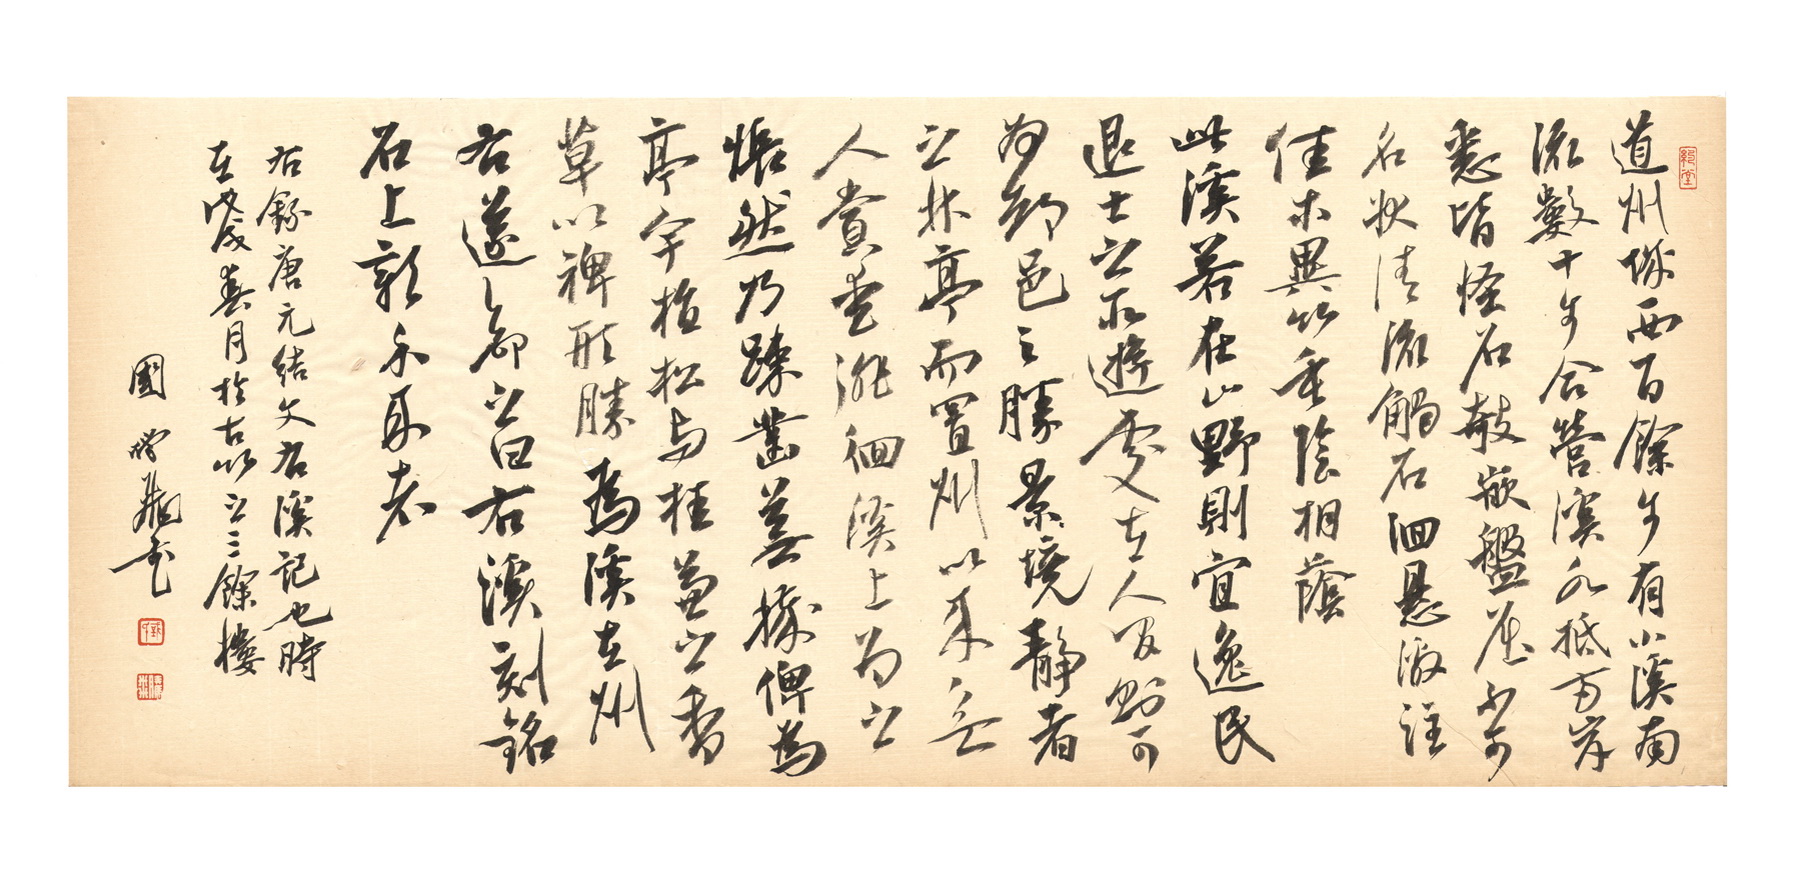 道州城西百餘步有小溪南
流數十步合營溪水抵兩岸
悉皆怪石敧嵌盤屈不可
名狀清流觸石洄懸激注
佳木異竹垂陰相蔭
此溪若在山野則宜逸民
退士之所遊處在人間則可
為都邑之勝景境靜者
之林亭而置州以來無
人賞愛徘徊溪上為之
悵然乃疎鑿蕪穢俾為
亭宇植松與桂兼之香
草以裨形勝為溪在州
右遂命之曰右溪刻銘
石上彰示來者
右錄唐元結文右溪記也時
在戊戌春月於古之三餘樓
國